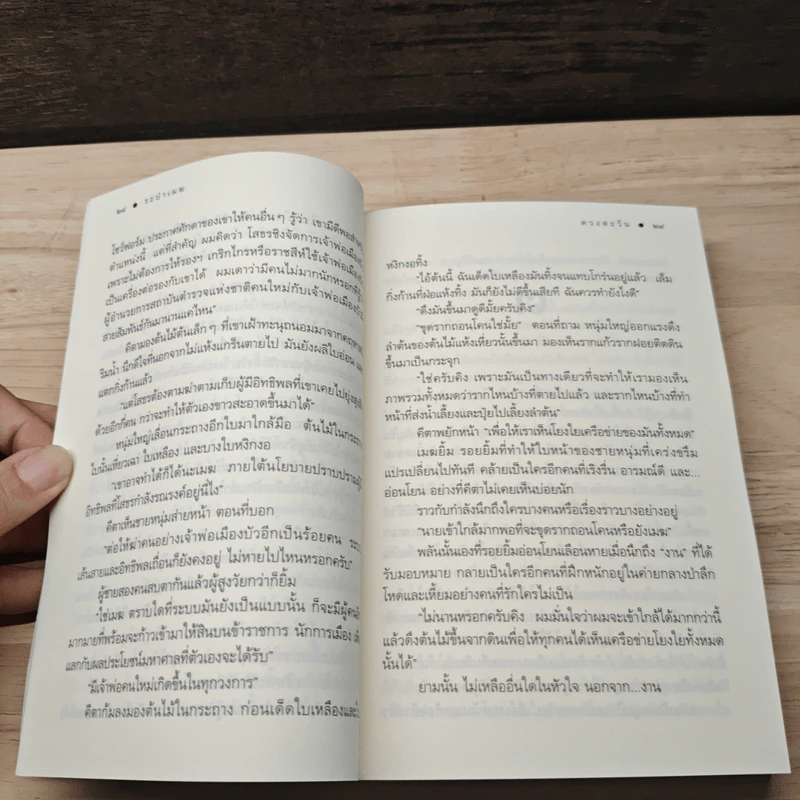 ๒๘ • ระบำเมฆ
โชว์ฟอร์ม ประกาศศักดาของเขาให้คนอื่นๆ รู้ว่า เขามีดีพอสำหรับ
ตำแหน่งนี้ แต่ที่สำคัญ ผมคิดว่า โสธรชิงจัดการเจ้าพ่อเมือง
เพราะไม่ต้องการให้รองฯ เกริกไกรหรือราชสีห์ใช้เจ้าพ่อเมือง
เป็นเครื่องต่อรองกับเขาได้ ผมเดาว่ามีคนไม่มากนักหรอกที่
ผู้อำนวยการสถาบันตำรวจแห่งชาติคนใหม่กับเจ้าพ่อเมือง
สายสัมพันธ์กันมานานแค่ไหน"
คีตามองต้นไม้ต้นเล็กๆ ที่เขาเฝ้าทะนุถนอมมาจาก
ริมน้ำ นึกดีใจที่นอกจากไม่แห้งแกร็นตายไป มันยังผลิใบอ่อน
แตกกิ่งก้านแล้ว
"แต่โสธรต้องตามฆ่าตามเก็บผู้มีอิทธิพลที่เขาเคยไปยุ่ง
ด้วยอีกกี่คน กว่าจะทำให้ตัวเองขาวสะอาดขึ้นมาได้"
หนุ่มใหญ่เลื่อนกระถางอีกใบมาใกล้มือ ต้นไม้ในกระถาง
ใบนั้นเหี่ยวเฉา ใบเหลือง และบางใบหงิกงอ
"เขาอาจทำได้ก็ได้นะเมฆ ภายใต้นโยบายปราบปรามผู้
อิทธิพลที่โสธรกำลังรณรงค์อยู่นี่ไง"
คีตาเห็นชายหนุ่มส่ายหน้า ตอนที่บอก
"ต่อให้ฆ่าคนอย่างเจ้าพ่อเมืองบัวอีกเป็นร้อยคน ระบบ
เส้นสายและอิทธิพลเถื่อนก็ยังคงอยู่ ไม่หายไปไหนหรอกครับ"
ผู้ชายสองคนสบตากันแล้วผู้สูงวัยกว่าก็ยิ้ม
"ใช่เมฆ ตราบใดที่ระบบมันยังเป็นแบบนั้น ก็จะมีผู้คน
มากมายที่พร้อมจะก้าวเข้ามาให้สินบนข้าราชการ นักการเมือง
แลกกับผลประโยชน์มหาศาลที่ตัวเองจะได้รับ"
"มีเจ้าพ่อคนใหม่เกิดขึ้นในทุกวงการ"
คีตาก้มลงมองต้นไม้ในกระถาง ก่อนเด็ดใบเหลืองและ
ดวงตะวัน • ๒๙
หงิกงอทิ้ง
"ไอ้ต้นนี้ ฉันเด็ดใบเหลืองมันทิ้งจนแทบโกร๋นอยู่แล้ว เล็ม
กิ่งก้านที่ฝ่อแห้งทิ้ง มันก็ยังไม่ดีขึ้นเสียที ฉันควรทำยังไงดี"
"ดึงมันขึ้นมาดูดีมั้ยครับคิง"
"ขุดรากถอนโคนใช่มั้ย" ตอนที่ถาม หนุ่มใหญ่ออกแรงดึง
ลำต้นของต้นไม้แห้งเหี่ยวนั้นขึ้นมา มองเห็นรากแก้วรากฝอยติดดิน
ขึ้นมาเป็นกระจุก
"ใช่ครับคิง เพราะมันเป็นทางเดียวที่จะทำให้เรามองเห็น
ภาพรวมทั้งหมดว่ารากไหนบ้างที่ตายไปแล้ว และรากไหนบ้างที่ทำ
หน้าที่ส่งน้ำเลี้ยงและปุ๋ยไปเลี้ยงลำต้น"
คีตาพยักหน้า "เพื่อให้เราเห็นโยงใยเครือข่ายของมันทั้งหมด"
เมฆยิ้ม รอยยิ้มที่ทำให้ใบหน้าของชายหนุ่มที่เคร่งขรึม
แปรเปลี่ยนไปทันที คล้ายเป็นใครอีกคนที่เริงรื่น อารมณ์ดี และ...
อ่อนโยน อย่างที่คีตาไม่เคยเห็นบ่อยนัก
ราวกับกำลังนึกถึงใครบางคนหรือเรื่องราวบางอย่างอยู่
"นายเข้าใกล้มากพอที่จะขุดรากถอนโคนหรือยังเมฆ"
พลันนั้นเองที่รอยยิ้มอ่อนโยนเลือนหายเมื่อนึกถึง "งาน" ที่ได้
รับมอบหมาย กลายเป็นใครอีกคนที่ฝึกหนักอยู่ในค่ายกลางป่าลึก
โหดและเหี้ยมอย่างคนที่รักใครไม่เป็น
"ไม่นานหรอกครับคิง ผมมั่นใจว่าผมจะเข้าใกล้ได้มากกว่านี้
แล้วดึงต้นไม้ขึ้นจากดินเพื่อให้ทุกคนได้เห็นเครือข่ายโยงใยทั้งหมด
นั้นได้"
ยามนั้น ไม่เหลืออื่นใดในหัวใจ นอกจาก...งาน